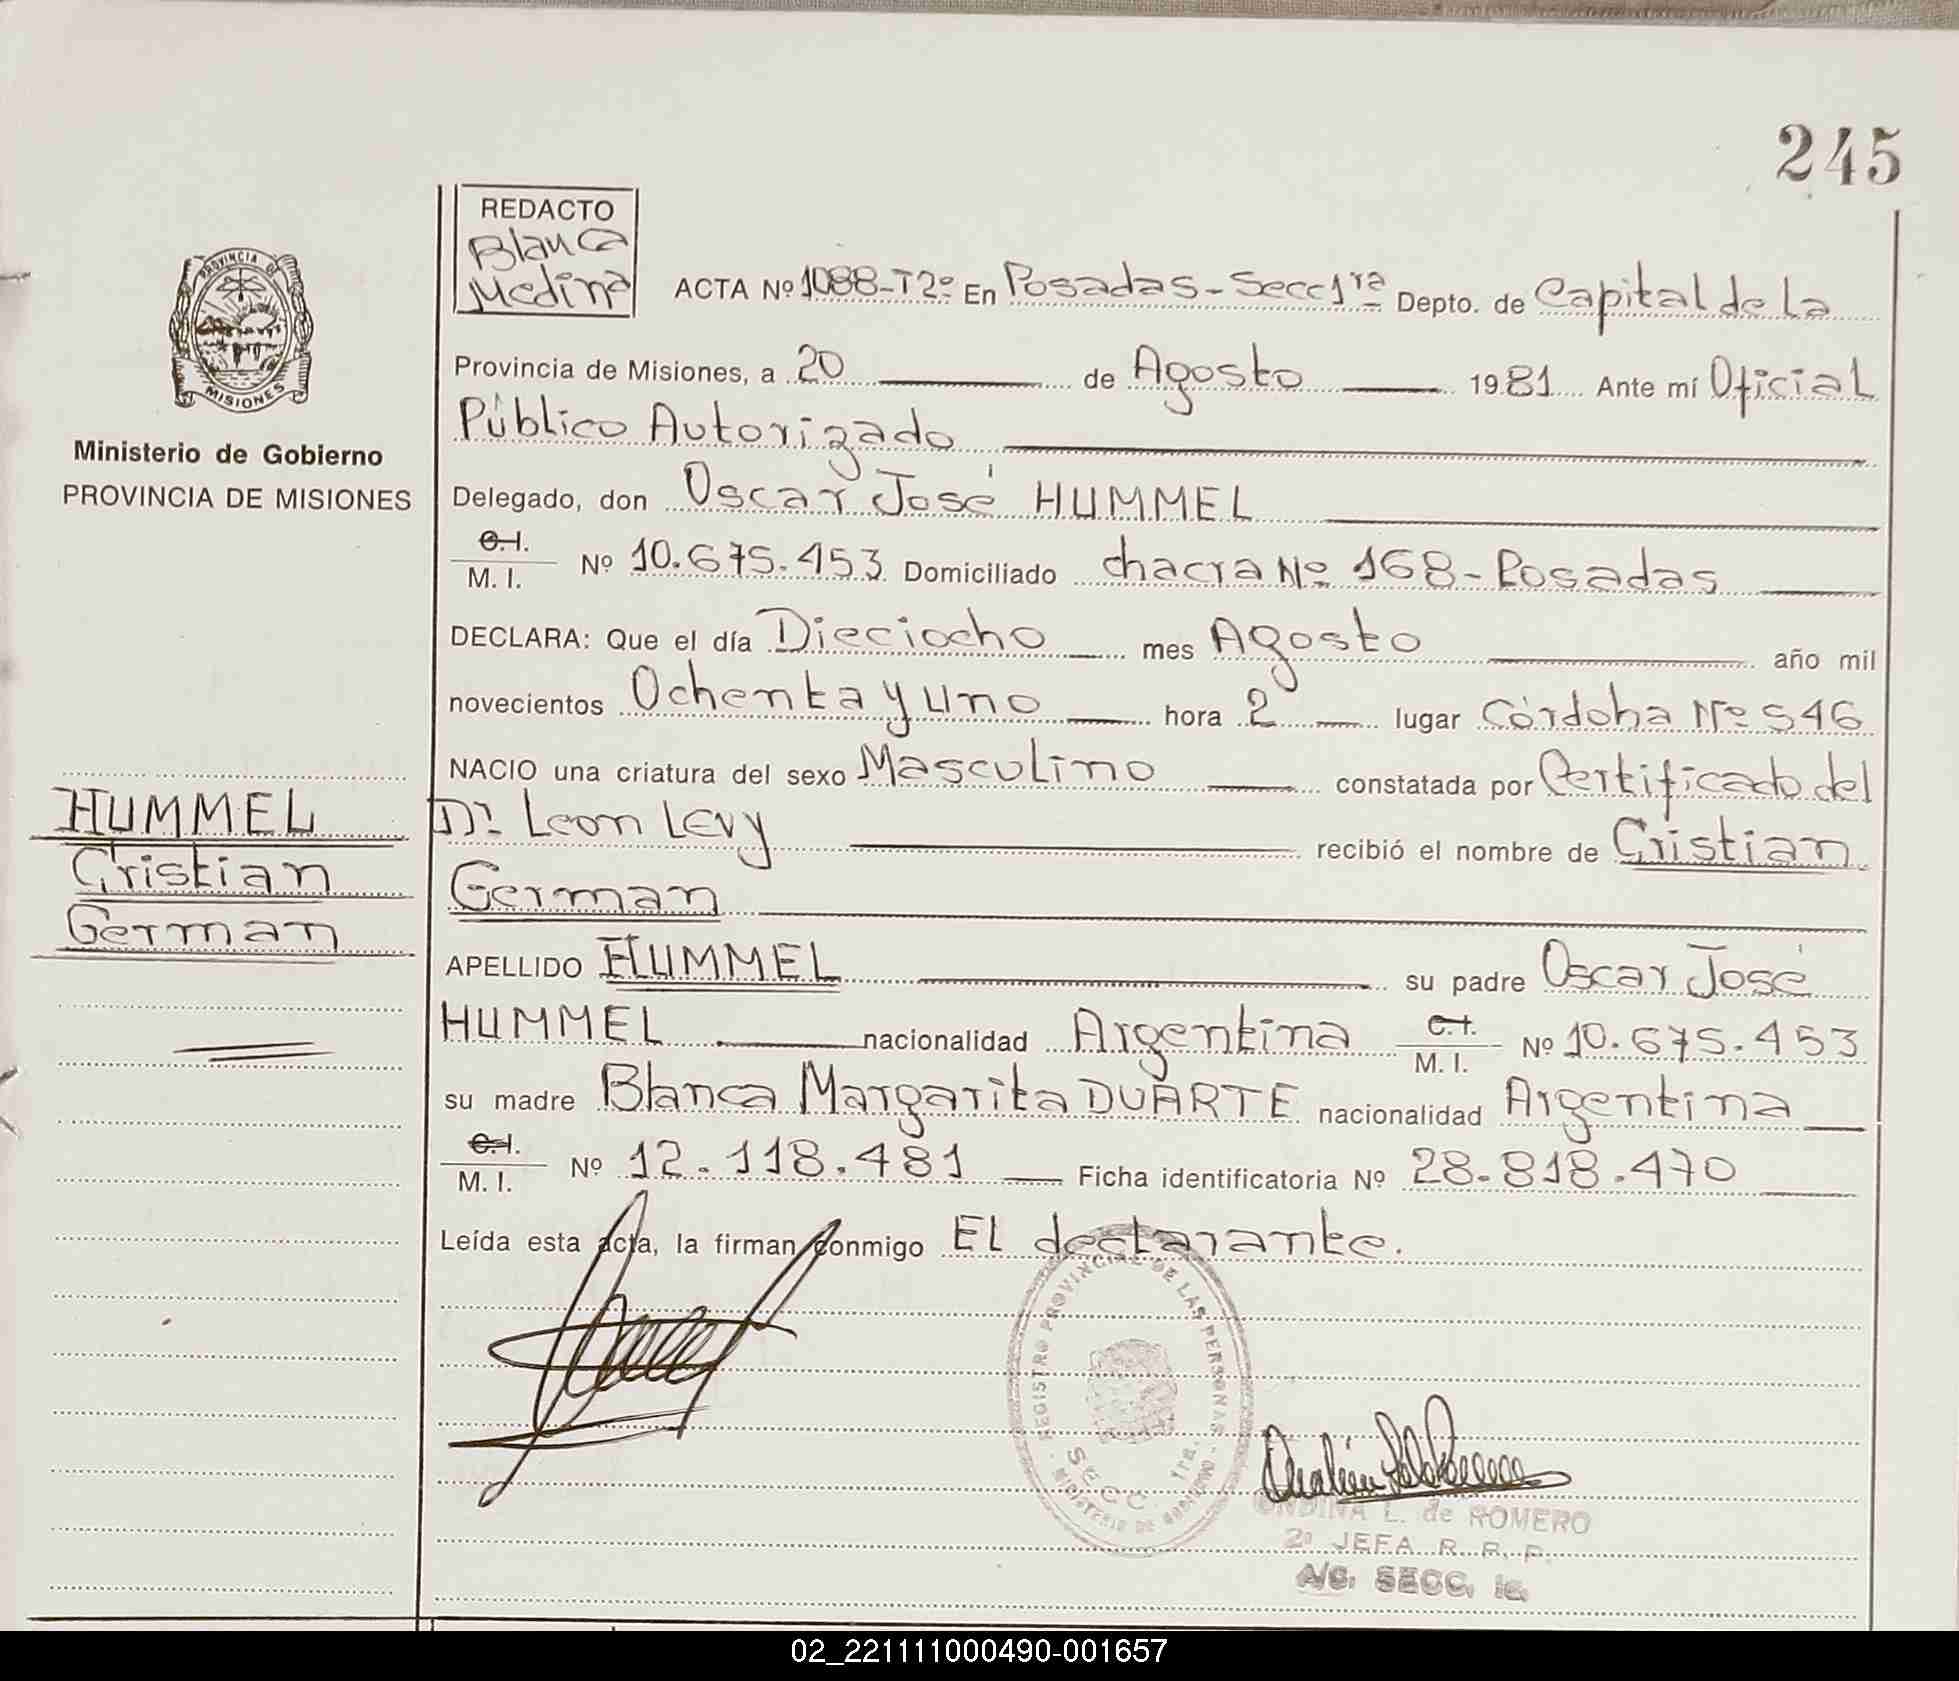 245
REDACTO
Blanca
Medina
PROVINCIA DE
MISIONES
Ministerio de Gobierno
PROVINCIA DE MISIONES
ACTA Nº 1088-T2º En Posadas-Secc 1ra Depto. de Capital de La
Provincia de Misiones, a 20 de Agosto 1981 Ante mí Oficial
Público Autorizado
Delegado, don Oscar José HUMMEL
C.I.
M. I. Nº 10.675.453 Domiciliado chacra Nº 168-Posadas
DECLARA: Que el día Dieciocho mes Agosto año mil
novecientos Ochenta y uno hora 2 lugar Córdoba Nº 546
NACIO una criatura del sexo Masculino constatada por Certificado del
Dr. Leon Levy recibió el nombre de Cristian
German
HUMMEL
Cristian
German
APELLIDO HUMMEL su padre Oscar José
HUMMEL nacionalidad Argentina C.I. M. I. Nº 10.675.453
su madre Blanca Margarita DUARTE nacionalidad Argentina
C.I.
M. I. Nº 12.118.481 Ficha identificatoria Nº 28.818.470
Leída esta acta, la firman conmigo El declarante.
REGISTRO PROVINCIAL DE LAS PERSONAS
SECC. 1ra.
MINISTERIO DE GOBIERNO
ONDINA L. de ROMERO
2º JEFA R. R. P.
A/C. SECC. 1a.
02_221111000490-001657